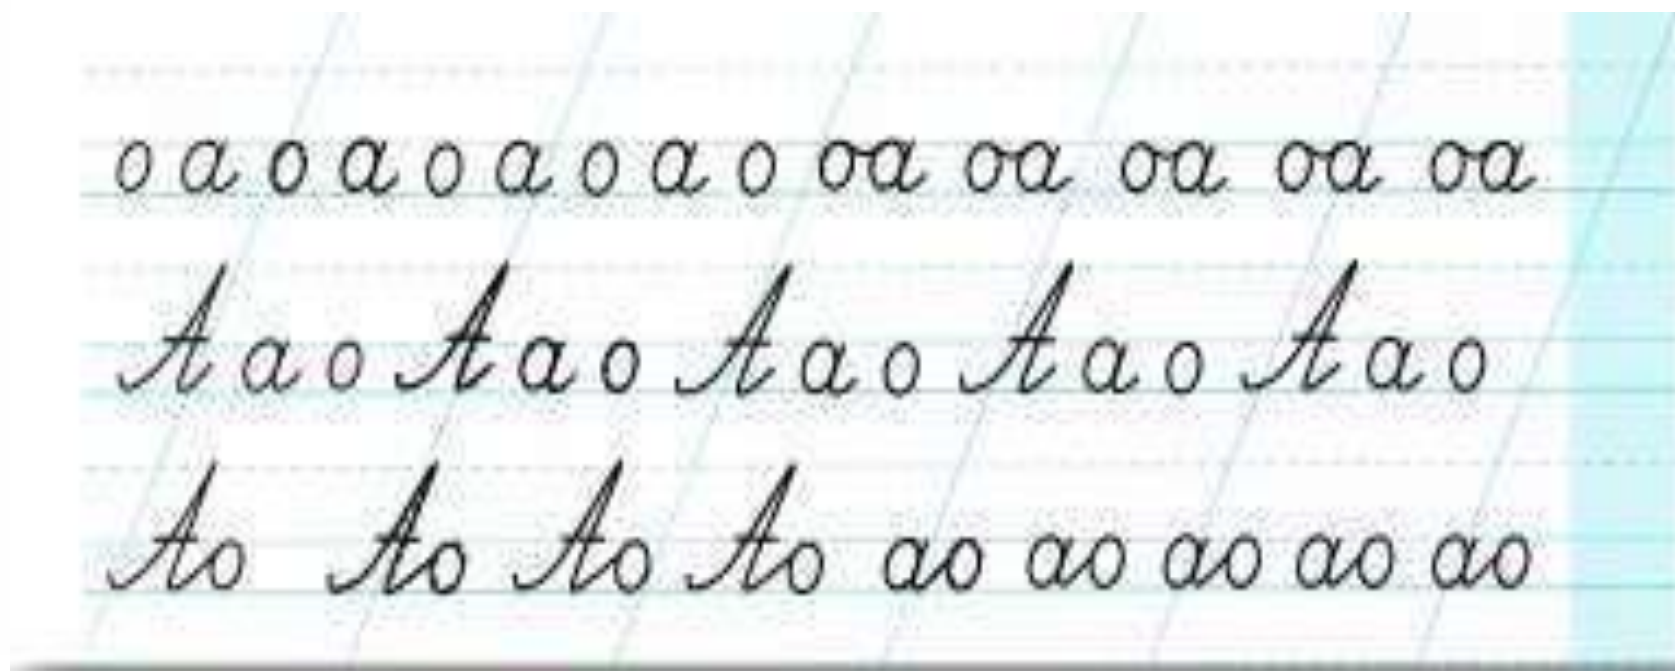 о а о а о а о а о оа оа оа оа оа
А а о А а о А а о А а о А а о
Ао Ао Ао Ао ао ао ао ао ао